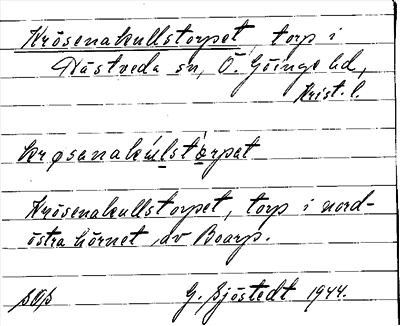 Krösenakullstorpet, torp i
Nästveda sn, Ö. Göinge hd,
Krist. l.
krøsanakúlstòrpat
Krösenakullstorpet, torp i nord-
östra hörnet av Boarp.
G. Sjöstedt 1944.